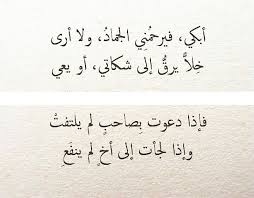 أبكي، فيرحمُني الجمادُ، ولا أرى
خِلاًّ يرقُّ إلى شكاتي، أو يعي
فإذا دعوت بِصاحبٍ لم يلتفتْ
وإذا لجأت إلى أخٍ لم ينفَعِ